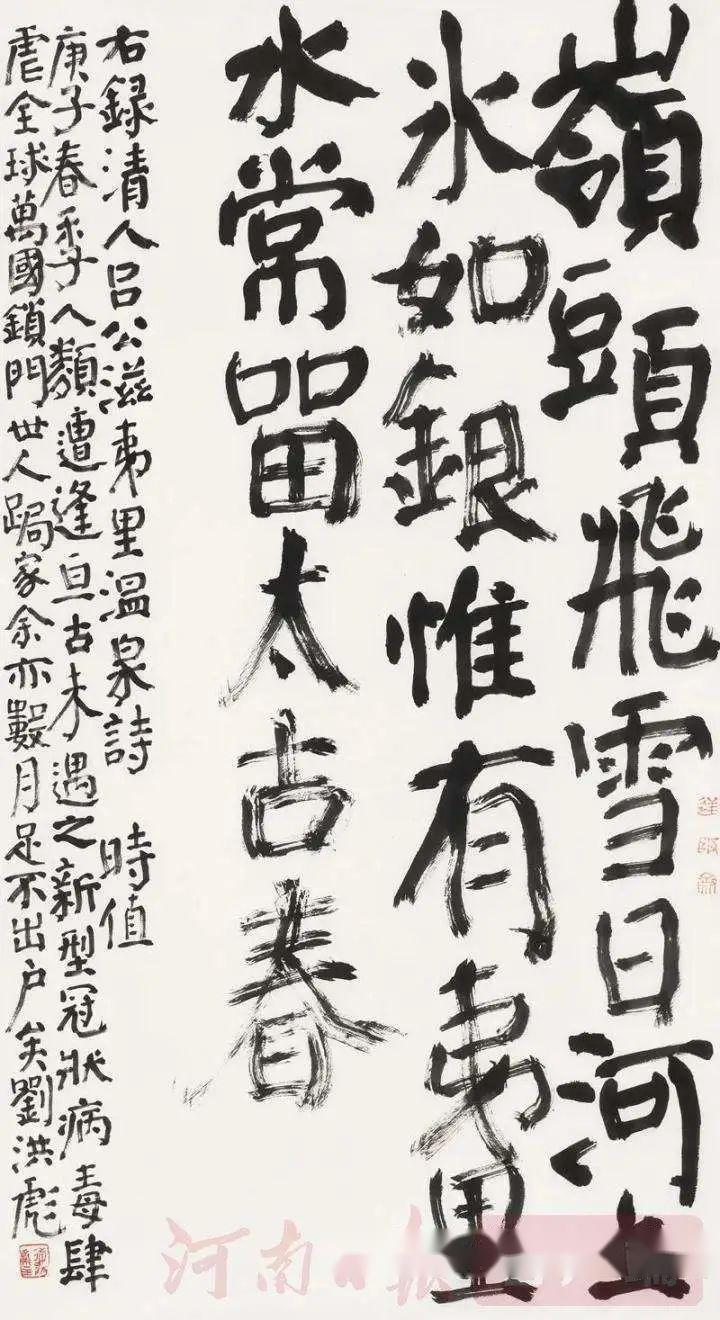 嶺頭飛雪日河上
氷如銀惟有夷里
水常㽞太古春
右録清人吕公滋夷里温泉詩 時值
庚子春季人類遭逢亘古未遇之新型冠狀病毒肆
虐全球萬國鎖門世人跼家余亦數月足不出户矣劉洪彪
河南日报